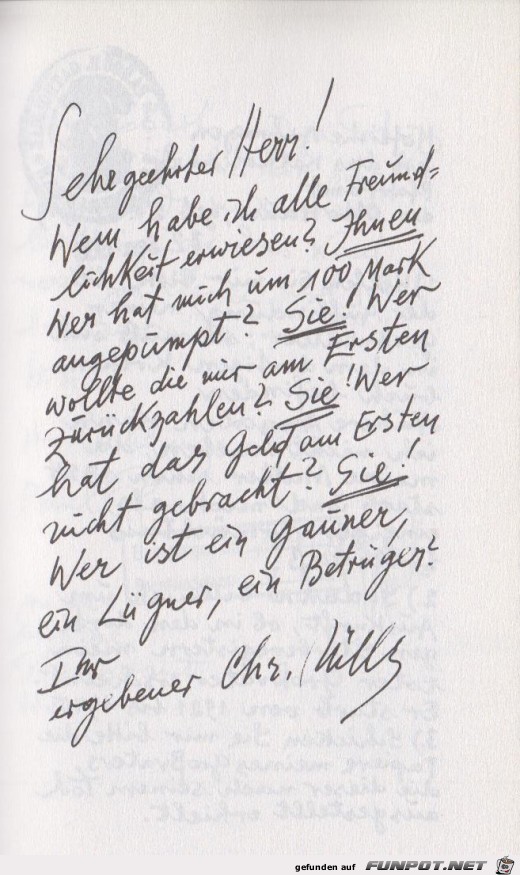 Sehr geehrter Herr!
Wem habe ich alle Freund=
lichkeit erwiesen? Ihnen
Wer hat mich um 100 Mark
angepumpt? Sie! Wer
wollte die mir am Ersten
zurückzahlen? Sie! Wer
hat das Geld am Ersten
nicht gebracht? Sie!
Wer ist ein Gauner,
ein Lügner, ein Betrüger?
Ihr
ergebener Chr. Müller
gefunden auf FUNPOT.NET